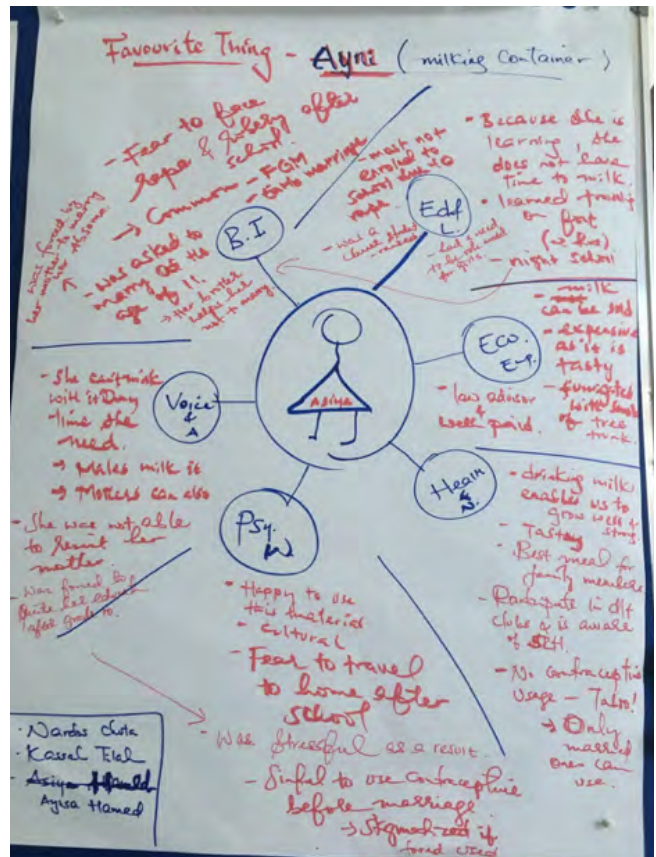 Favourite Thing - Ayni (milking Container)
- Fear to face
rape & robery after
school.
→ Common - FGM
- Early marriage
- was asked to
marry at the
age of 11.
→ Her brother
helped her
not to marry.
was forced by
her mother to marry
B.I
- most not
enrolled to
school due to
rape.
- was a
clever student
- ranked
Ed &
L.
- Because she is
learning, she
does not have
time to milk.
- learned
on foot
- night school
Eco.
Emp.
- milk
can be sold
- expensive
as it is
tasty
- fumigated
with smoke
of tree
trunk.
- law advisor
&
well paid.
Asiya
Voice
& A
- She can't milk
with it Day
time she
need.
→ Males milk it
→ Mothers can also
- She was not able
to
her
mother
- was forced to
quite her education
after grade 10.
Health
& N.
- drinking milk
enables us to
grow well &
strong
- Tastey
- Best meal for
family members
- Participate in d/t
clubs & is aware
of SRH.
- No contraceptive
usage - Taboo!
→ Only
married
ones can
use.
Psy.
W
- Happy to use
this material
- Cultural
- Fear to travel
to home after
school
- Was Stressful as a result.
- Sinful to use contraceptive
before marriage.
→ Stigmatized if
found used
· Nardos Chota
· Kassal
- Asiya
Ayisa Hamed